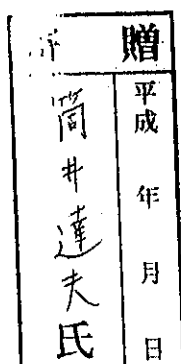 贈
平成 年 月 日
筒井達夫氏